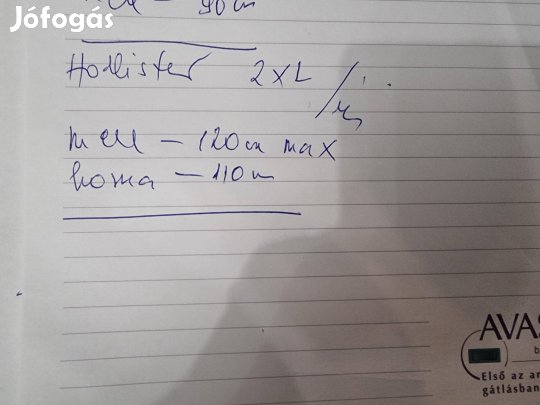 Jófogás
90 cm
Hollister 2XL
mell - 120 cm max
hossza - 110 cm
AVAS
b
Első az ar
gátlásban